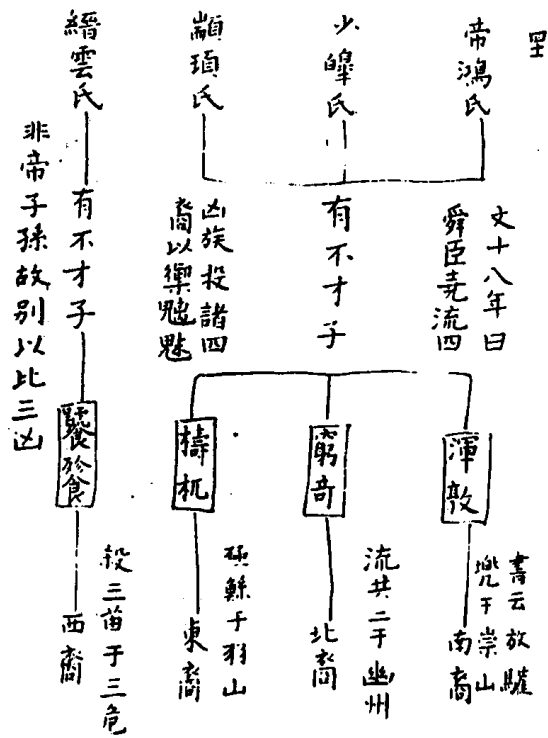 罡
帝鴻氏
少皞氏
顓頊氏
縉雲氏
文十八年曰
舜臣堯流四
凶族投諸四
裔以禦魑魅
有不才子
有不才子
非帝子孫故別以比三凶
渾敦
窮奇
檮杌
饕餮
書云放驩
兜于崇山
南裔
流共工于幽州
北裔
殛鯀于羽山
東裔
殺三苗于三危
西裔